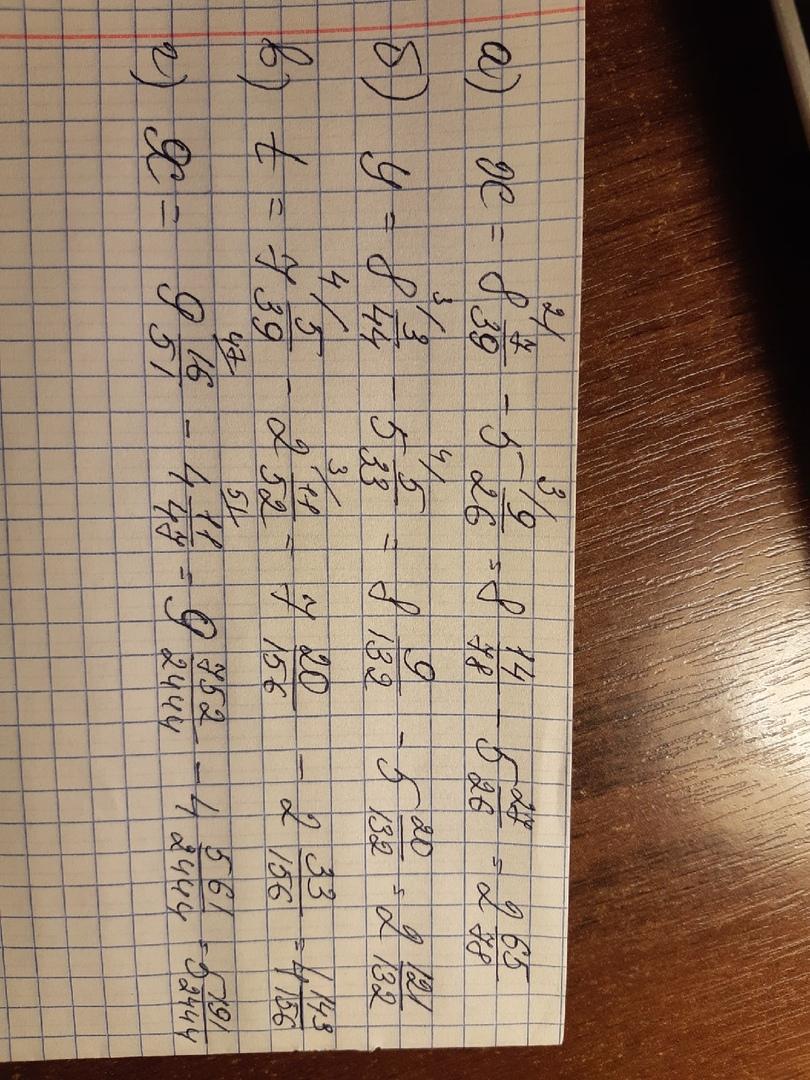 а) x = 8 2/ 7/39 - 5 3/ 9/26 = 8 14/78 - 5 27/26 = 2 65/78
б) y = 8 3/ 3/44 - 5 4/ 5/33 = 8 9/132 - 5 20/132 = 2 121/132
в) t = 7 4/ 5/39 - 2 3/ 11/52 = 7 20/156 - 2 33/156 = 4 143/156
г) x = 9 47/ 16/51 - 4 51/ 11/47 = 9 752/2444 - 4 561/2444 = 5 191/2444